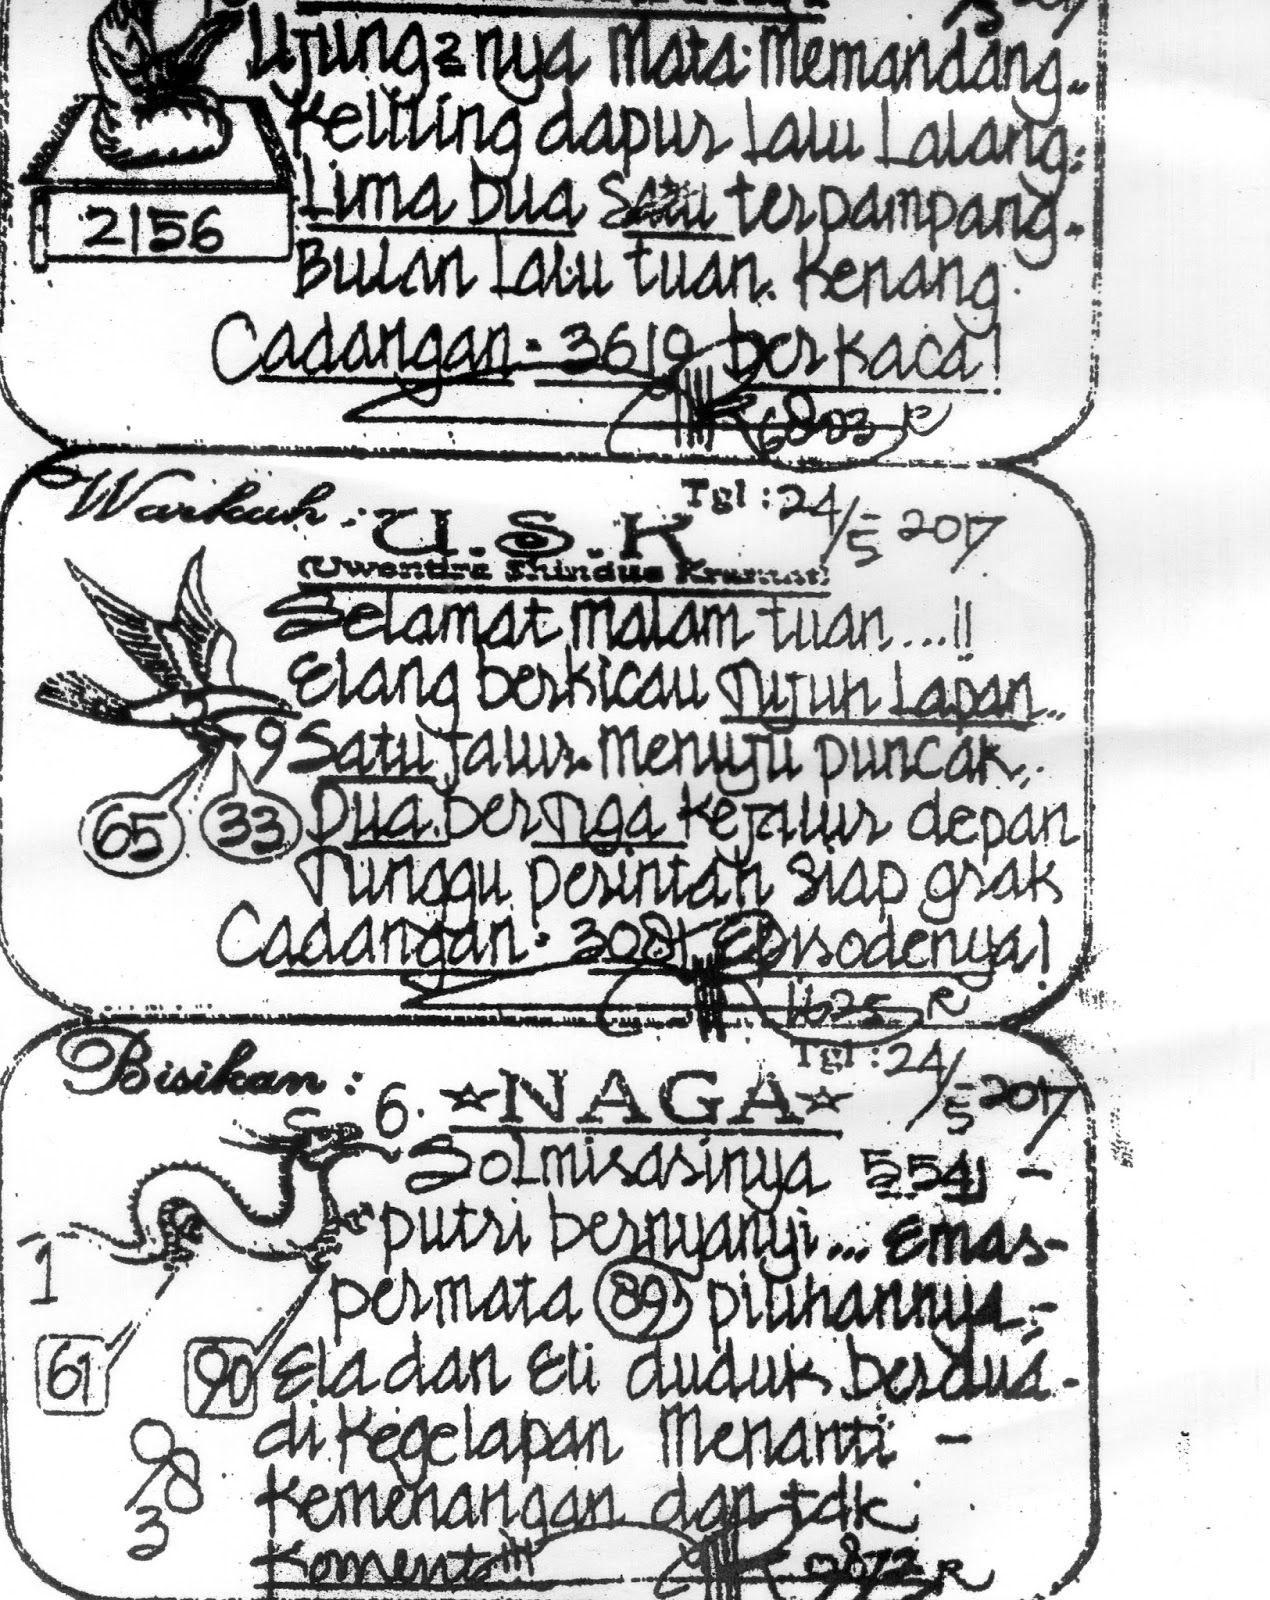 Ujung2nya Mata Memandang..
Keliling dapur Lalu Lalang:
Lima Dua Satu terpampang.
2156
Bulan Lalu tuan. Kenang.
Cadangan: 3619 berkaca!
6803 R
Warkah: U.S.K Tgl: 24/5-2017
Selamat Malam tuan...!!
Elang berkicau Tujuh Lapan..
9 Satu Jalur Menuju puncak,.
65 33 Dua berTiga Kejalur depan
Tunggu perintah siap grak
Cadangan: 3081 Episodenya!
1625 R
Bisikan: 6. NAGA Tgl: 24/5-2017
Solmisasinya 5541 -
putri bernyanyi... Emas-
1 permata 89 pilihannya.-
61 90 Ela dan Eli duduk berdua-
di Kegelapan Menanti -
983
Kemenangan dan tdk
Koment!!!